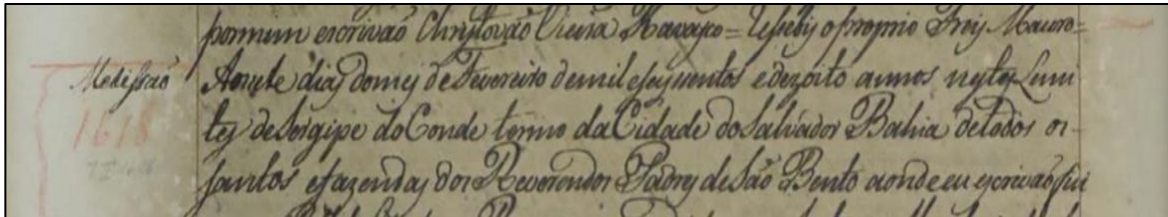 por mim escrivão Christovão Vieira Ravasco = Resebi o proprio Frey Mauro =
Medissaõ
1618
Aos sete dias do mes de Fevereiro de mil e seyssentos e dezoito annos nestes Limi
tes de Sergipe do Conde termo da Cidade do Salvador Bahia de todos os
santos e fazendas dos Reverendos Padres de São Bento aonde eu escrivão fui